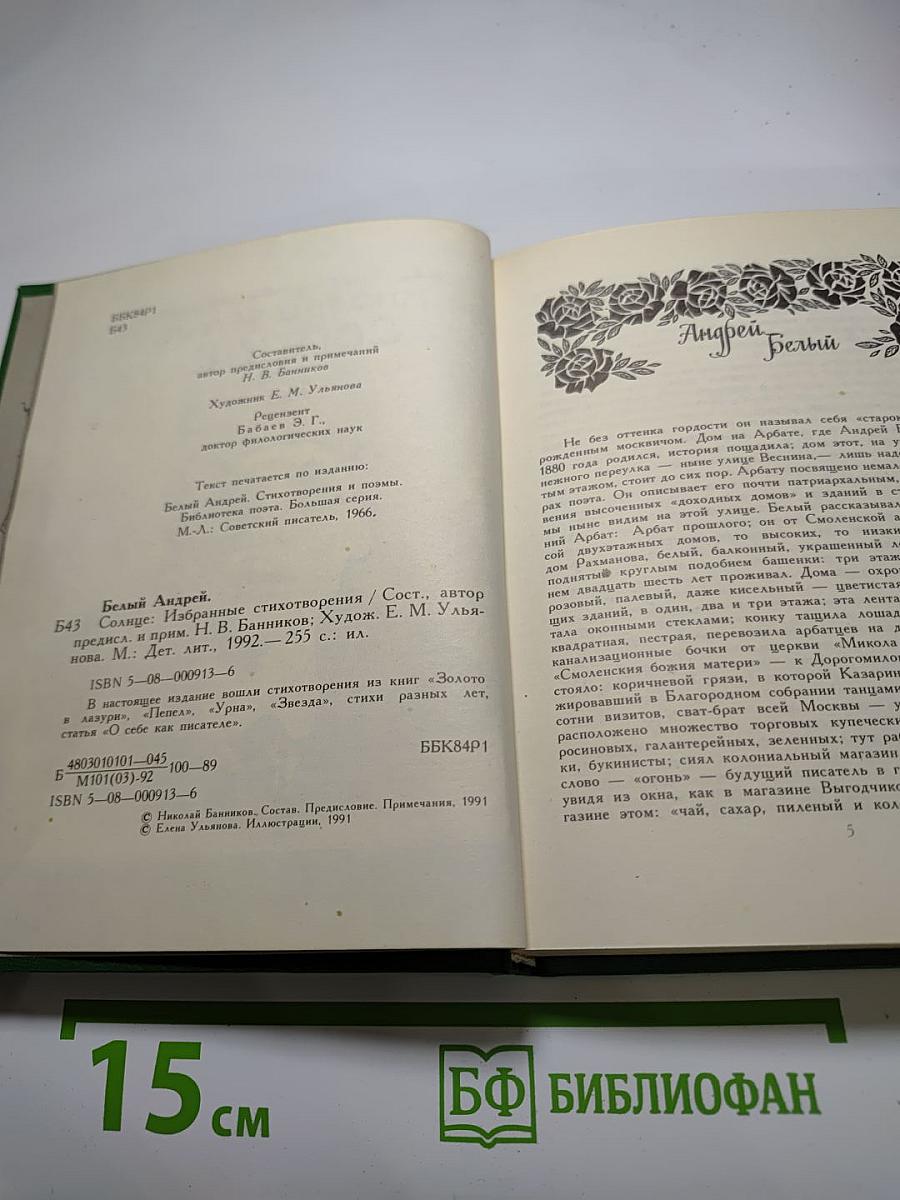 ББК84Р1
Б43
Составитель,
автор предисловия и примечаний
Н. В. Банников
Художник Е. М. Ульянова
Рецензент
Бабаев Э. Г.,
доктор филологических наук
Текст печатается по изданию:
Белый Андрей. Стихотворения и поэмы.
Библиотека поэта. Большая серия.
М.-Л.: Советский писатель, 1966.
Белый Андрей.
Б43 Солнце: Избранные стихотворения / Сост., автор
предисл. и прим. Н. В. Банников; Худож. Е. М. Улья-
нова. М.: Дет. лит., 1992.— 255 с.: ил.
ISBN 5—08—000913—6
В настоящее издание вошли стихотворения из книг «Золото
в лазури», «Пепел», «Урна», «Звезда», стихи разных лет,
статья «О себе как писателе».
ББК84Р1
Б 4803010101—045
М101(03)-92 100—89
ISBN 5—08—000913—6
© Николай Банников. Состав. Предисловие. Примечания, 1991
© Елена Ульянова. Иллюстрации, 1991
Андрей
Белый
Не без оттенка гордости он называл себя
рожденным москвичом. Дом на Арбате, где Андрей
1880 года родился, история пощадила; дом этот, на
нежного переулка — ныне улице Веснина,— лишь
тым этажом, стоит до сих пор. Арбату посвящено
рах поэта. Он описывает его почти патриархальным,
вения высоченных «доходных домов» и зданий в
мы ныне видим на этой улице. Белый рассказывал
ний Арбат: Арбат прошлого; он от Смоленской
сой двухэтажных домов, то высоких, то
дом Рахманова, белый, балконный, украшенный
поднятый круглым подобием башенки: три
нем двадцать шесть лет проживал. Дома —
розовый, палевый, даже кисельный — цветистая
щих зданий, в один, два и три этажа; эта лента
тала оконными стеклами; конку тащила
квадратная, пестрая, перевозила арбатцев на
канализационные бочки от церкви «Микола
«Смоленския божия матери» — к
стояло: коричневой грязи, в которой
жировавший в Благородном собрании танцами
сотни визитов, сват-брат всей Москвы —
расположено множество торговых
росиновых, галантерейных, зеленных; тут
ки, букинисты; сиял колониальный магазин
слово — «огонь» — будущий писатель в
увидя из окна, как в магазине
газине этом: «чай, сахар, пиленый и
5
15 см
БФ БИБЛИОФАН